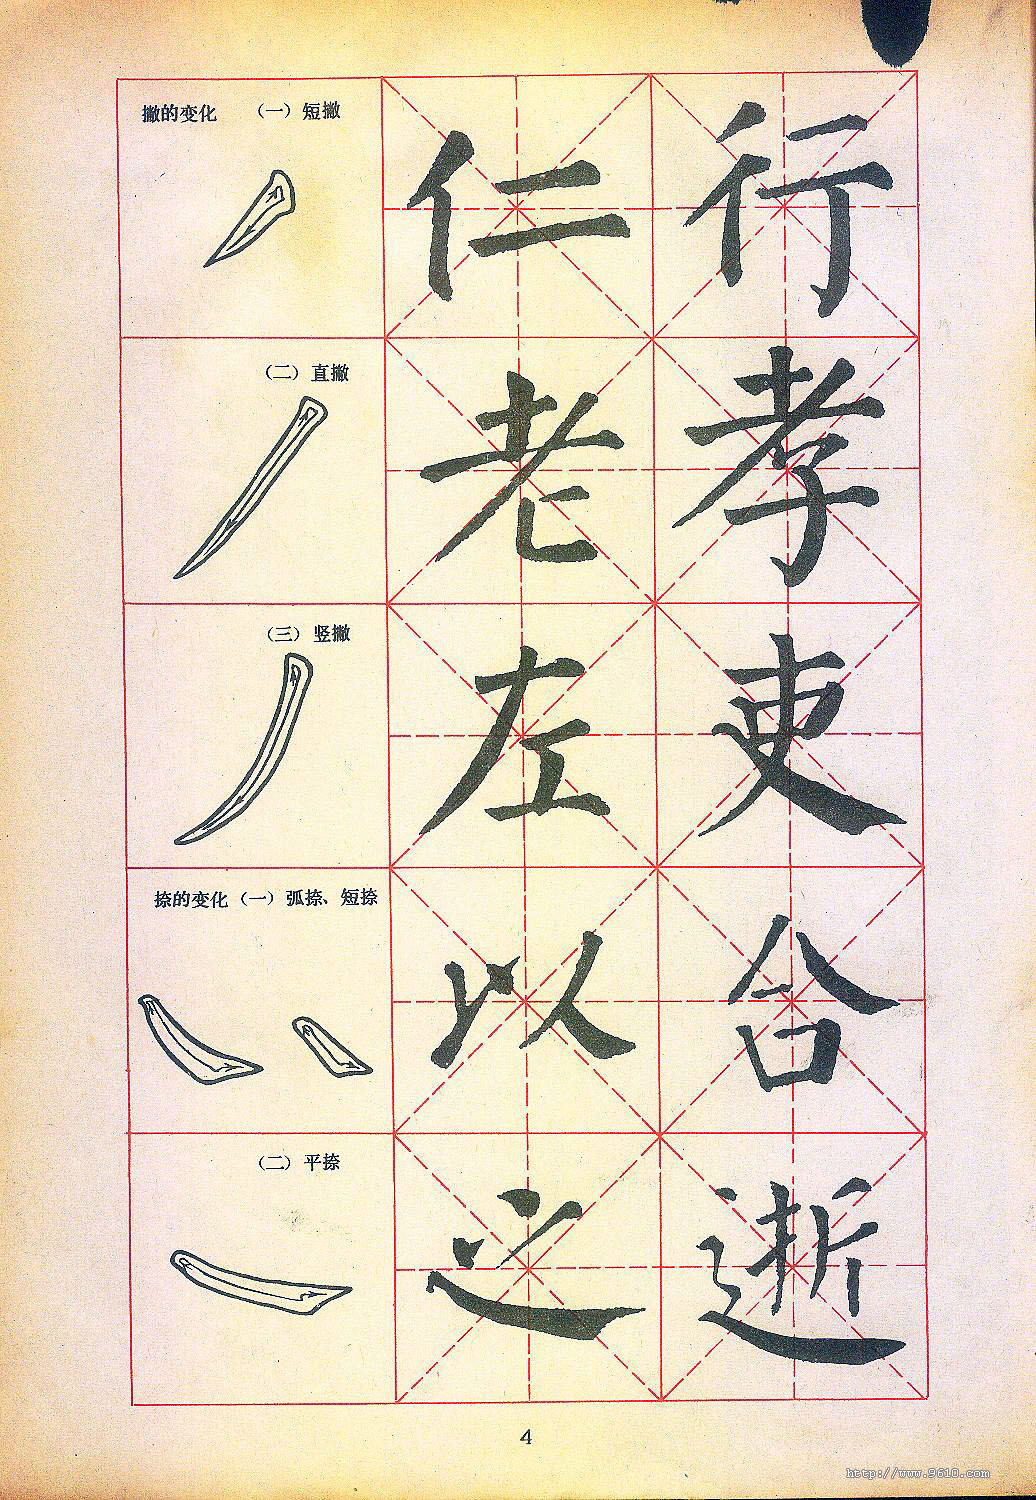 撇的变化 （一）短撇
仁 行
（二）直撇
老 孝
（三）竖撇
左 吏
捺的变化（一）弧捺、短捺
以 合
（二）平捺
之 逝
4
http://www.9610.com